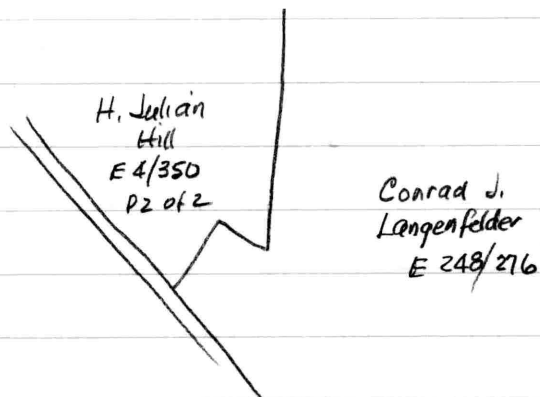 H. Julian
Hill
E 4/350
P2 of 2
Conrad J.
Langenfelder
E 248/276